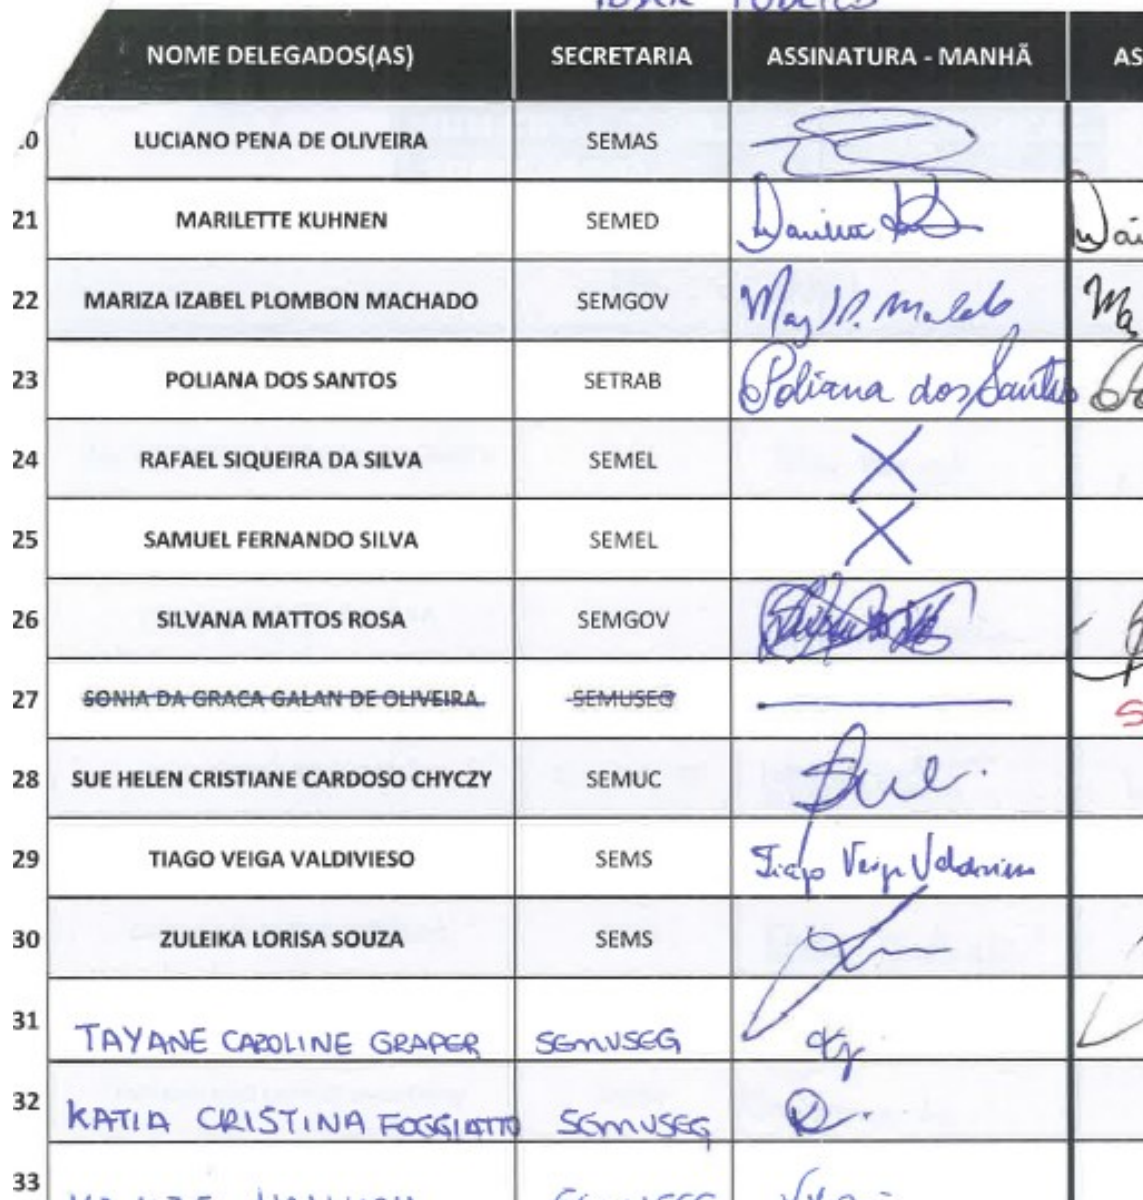 PODER PÚBLICO
NOME DELEGADOS(AS) SECRETARIA ASSINATURA - MANHÃ AS
.0 LUCIANO PENA DE OLIVEIRA SEMAS
21 MARILETTE KUHNEN SEMED
22 MARIZA IZABEL PLOMBON MACHADO SEMGOV
23 POLIANA DOS SANTOS SETRAB Poliana dos Santos
24 RAFAEL SIQUEIRA DA SILVA SEMEL X
25 SAMUEL FERNANDO SILVA SEMEL X
26 SILVANA MATTOS ROSA SEMGOV
27 SONIA DA GRACA GALAN DE OLIVEIRA SEMUSEG
28 SUE HELEN CRISTIANE CARDOSO CHYCZY SEMUC Sue
29 TIAGO VEIGA VALDIVIESO SEMS Tiago Veiga Valdivieso
30 ZULEIKA LORISA SOUZA SEMS
31 TAYANE CAROLINE GRAPER SEMUSEG
32 KATIA CRISTINA FOGGIATTO SEMUSEG
33